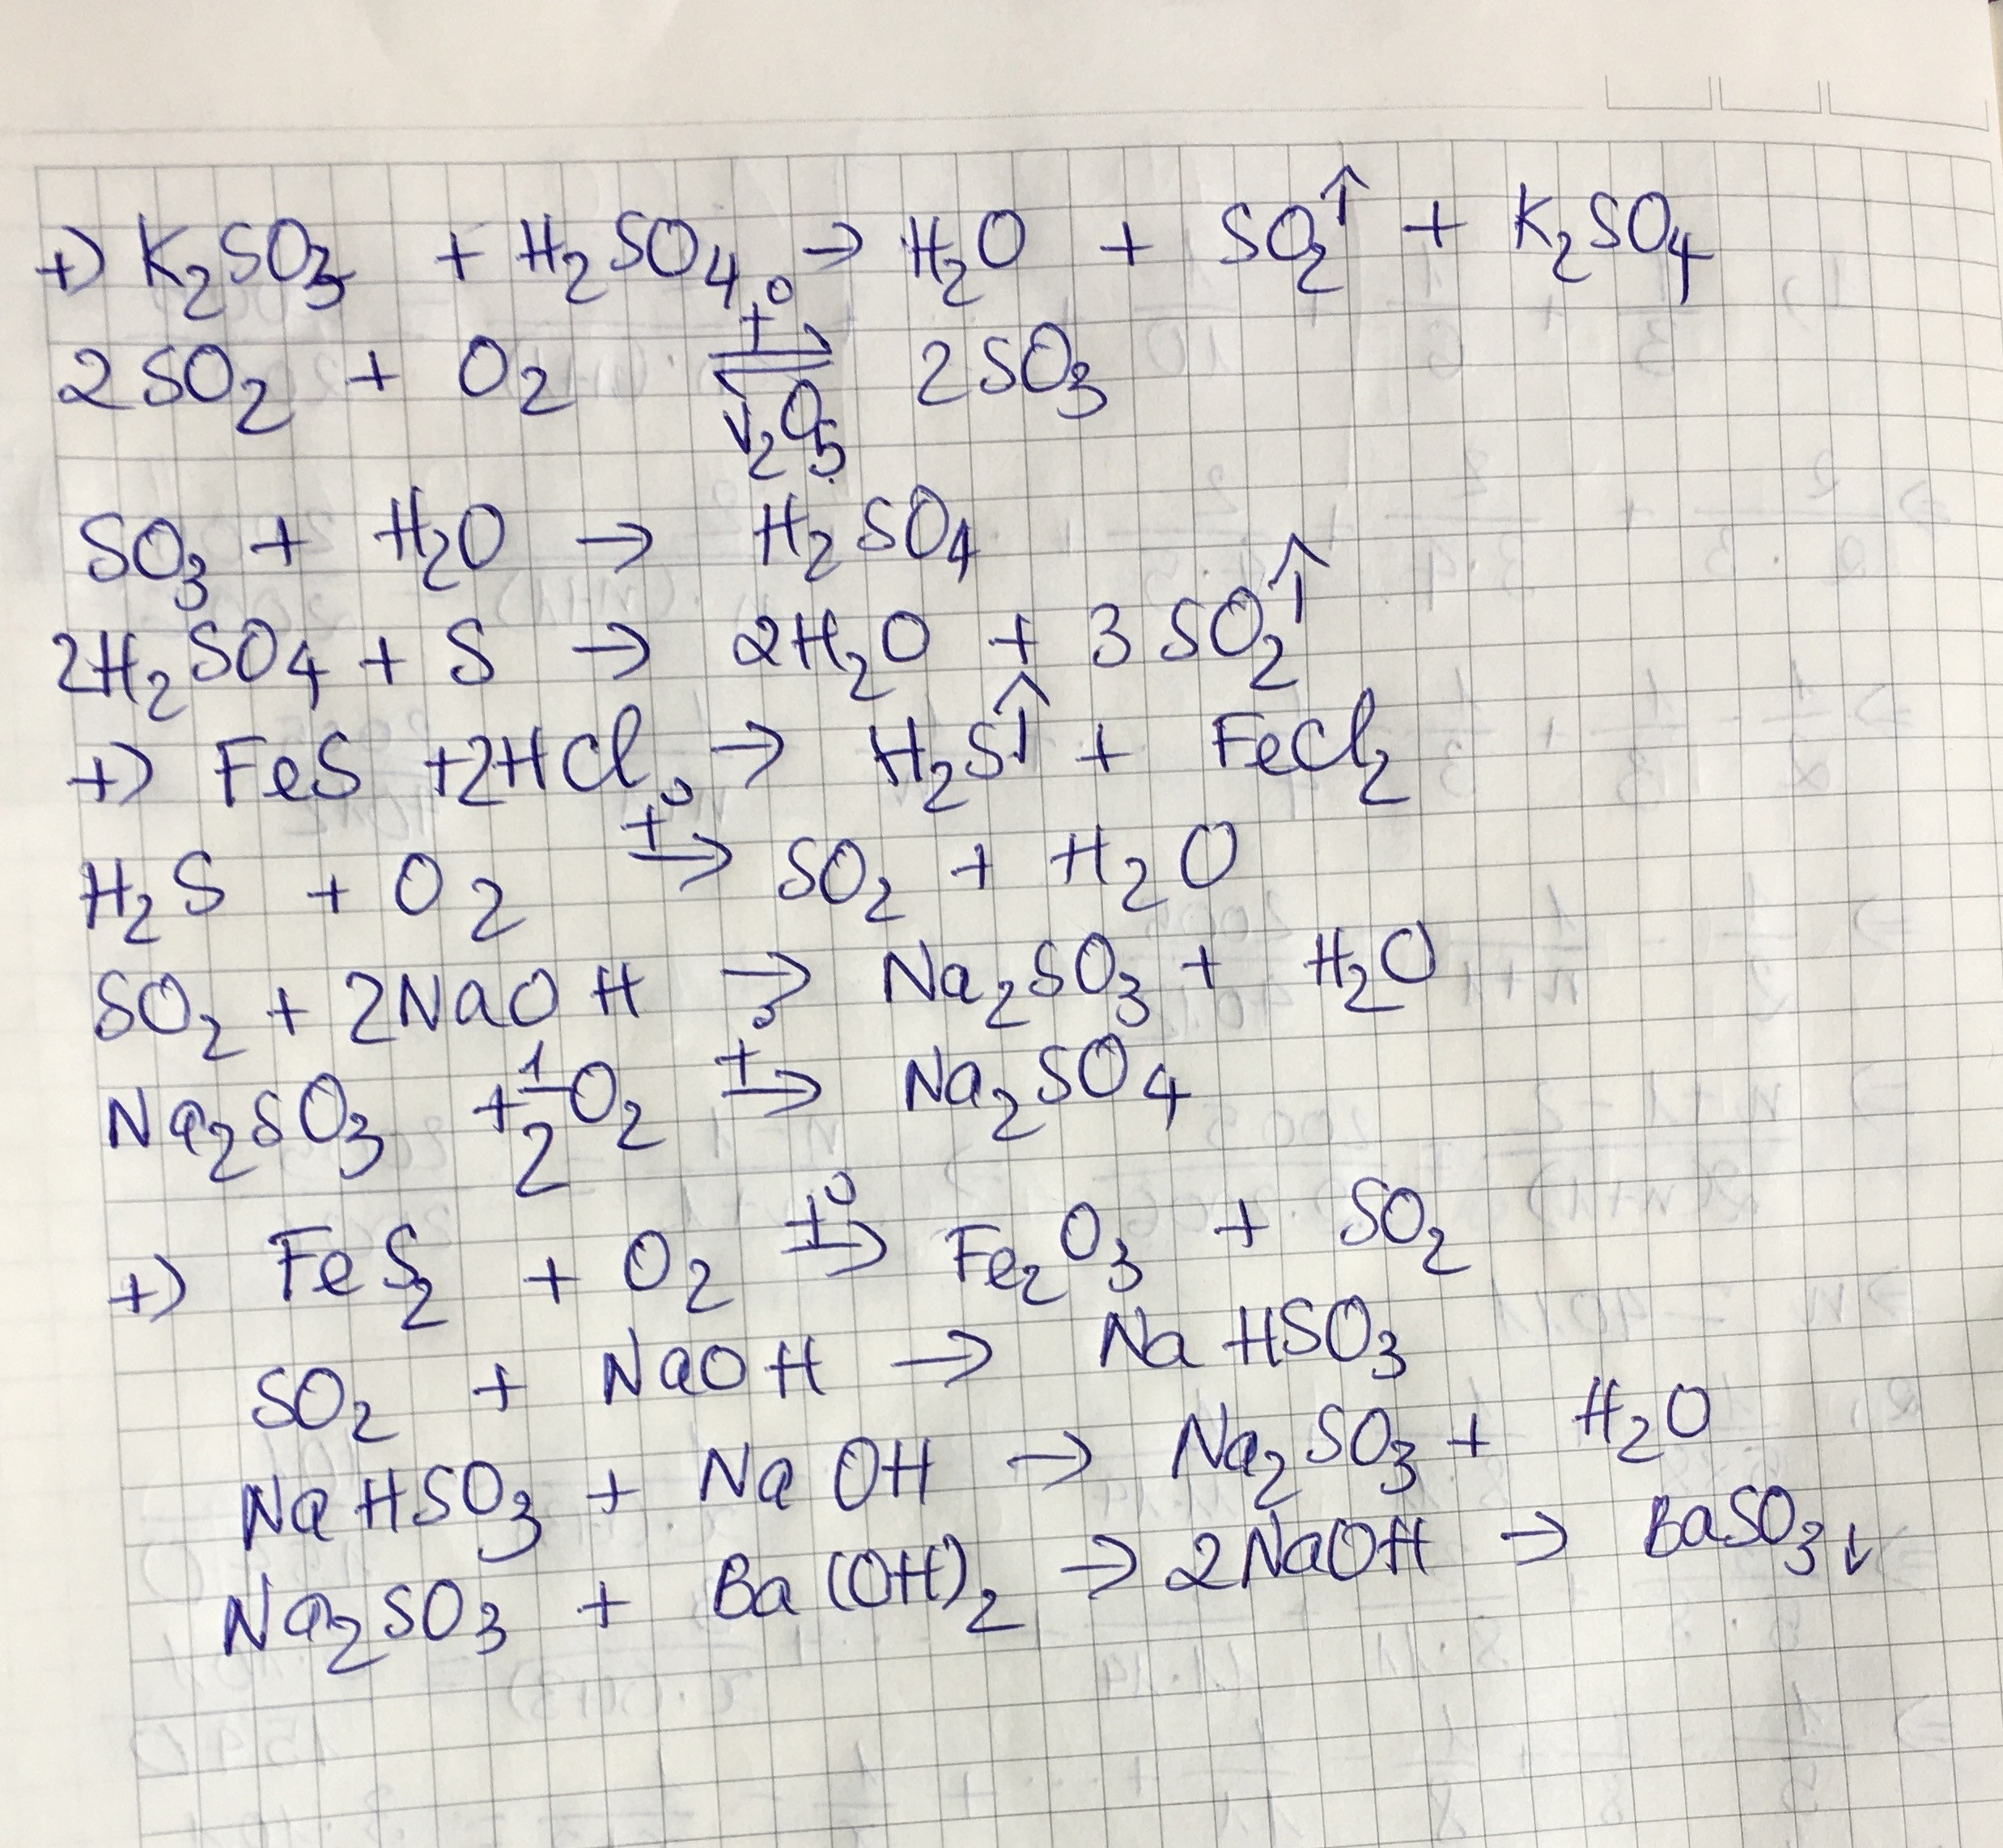 +) K₂SO₃ + H₂SO₄ → H₂O + SO₂↑ + K₂SO₄
2SO₂ + O₂ ⇌ 2SO₃ (t°, V₂O₅)
SO₃ + H₂O → H₂SO₄
2H₂SO₄ + S → 2H₂O + 3SO₂↑
+) FeS + 2HCl → H₂S↑ + FeCl₂
H₂S + O₂ t°→ SO₂ + H₂O
SO₂ + 2NaOH → Na₂SO₃ + H₂O
Na₂SO₃ + 1/2 O₂ t°→ Na₂SO₄
+) FeS₂ + O₂ t°→ Fe₂O₃ + SO₂
SO₂ + NaOH → NaHSO₃
NaHSO₃ + NaOH → Na₂SO₃ + H₂O
Na₂SO₃ + Ba(OH)₂ → 2NaOH → BaSO₃↓